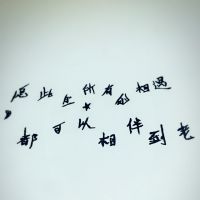 愿此生所有的相遇,
都可以相伴到老